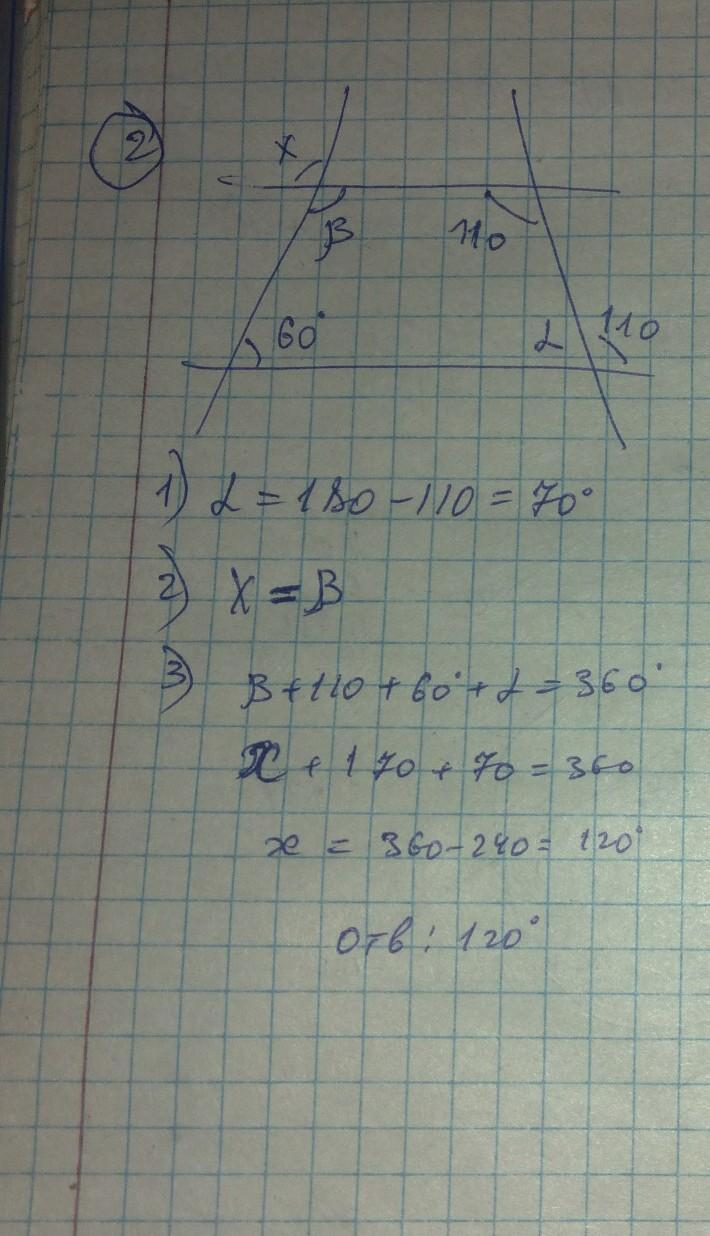 2
x
β
110
60°
α
110
1) α = 180 - 110 = 70°
2) X = β
3) β + 110 + 60° + α = 360°
x + 170 + 70 = 360
x = 360 - 240 = 120°
Отв: 120°